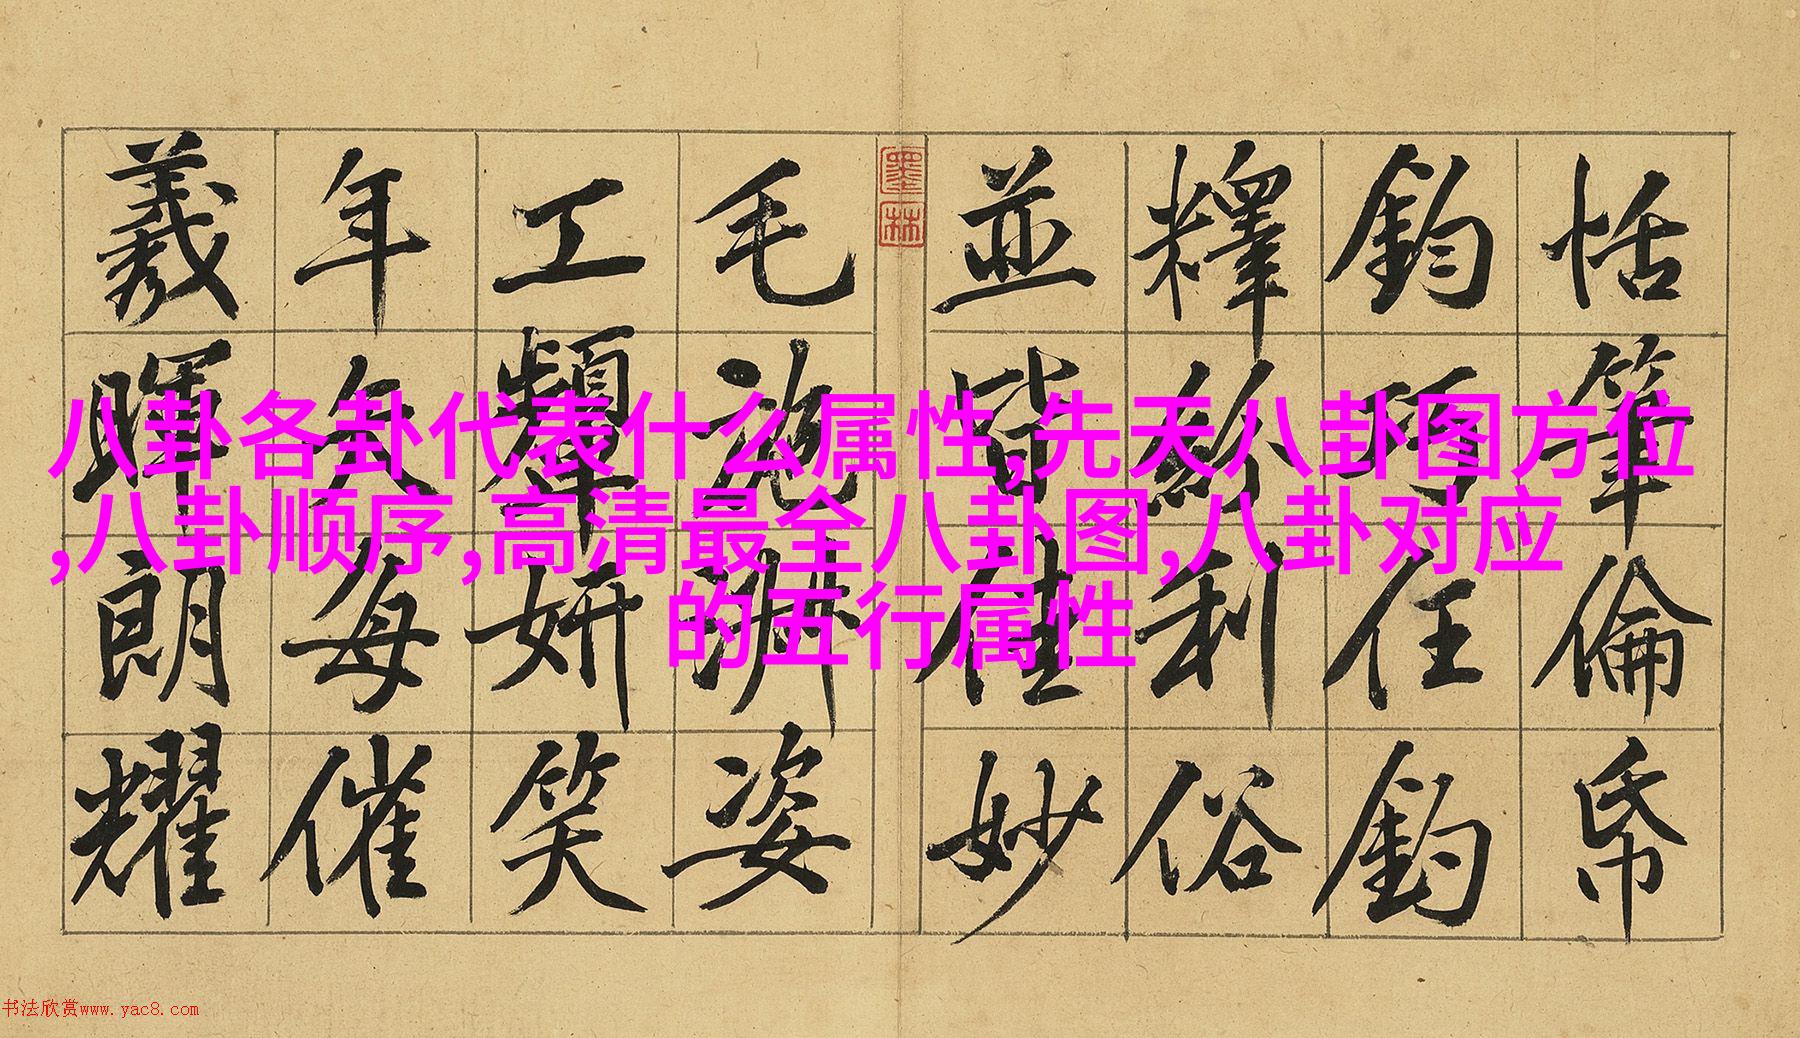 恬筆倫帋
鈞巧任鈞
釋紛利俗
並皆佳妙
墨林
毛施淑姿
工顰妍笑
年矢每催
羲暉朗耀
八卦各卦代表什么属性,先天八卦图方位
,八卦顺序,高清最全八卦图,八卦对应
的五行属性
书法欣赏www.yac8.com